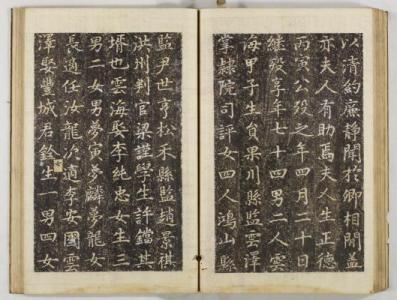 以清約廉靜聞於卿相間蓋
亦夫人有助焉夫人生正德
丙寅公歿之年四月二十日
継歿享年七十四男二人雲
海甲子生員果川縣監雲澤
掌隷院司評女四人鴻山縣
監尹世亨松禾縣監趙景祺
洪州判官梁謹學生許鐺其
壻也雲海娶李純忠女生三
男二女男夢寅夢麟夢龍女
長適任汝龍次適李安國雲
澤娶豐城君銓生一男四女